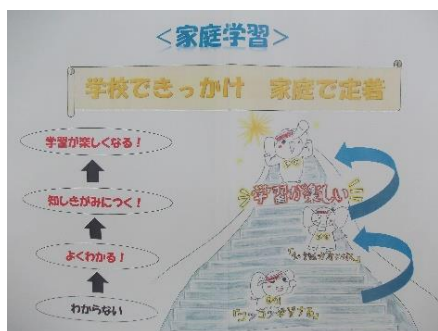 ＜家庭学習＞
学校できっかけ　家庭で定着
学習が楽しくなる！
知しきがみにつく！
よくわかる！
わからない
学習が楽しい